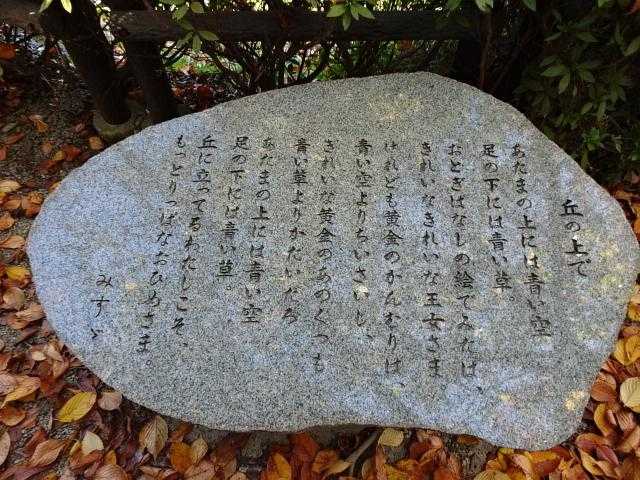 丘の上で
あたまの上には青い空
足の下には青い草。
おとぎばなしの絵でみたは、
きれいなきれいな王女さま、
けれども黄金のかんむりは、
青い空よりちいさいし、
きれいな黄金のあのくつも
青い草よりかたいだろ
あたまの上には青い空
足の下には青い草。
丘に立ってるわたしこそ、
もっとりっぱなおひめさま。
みすゞ